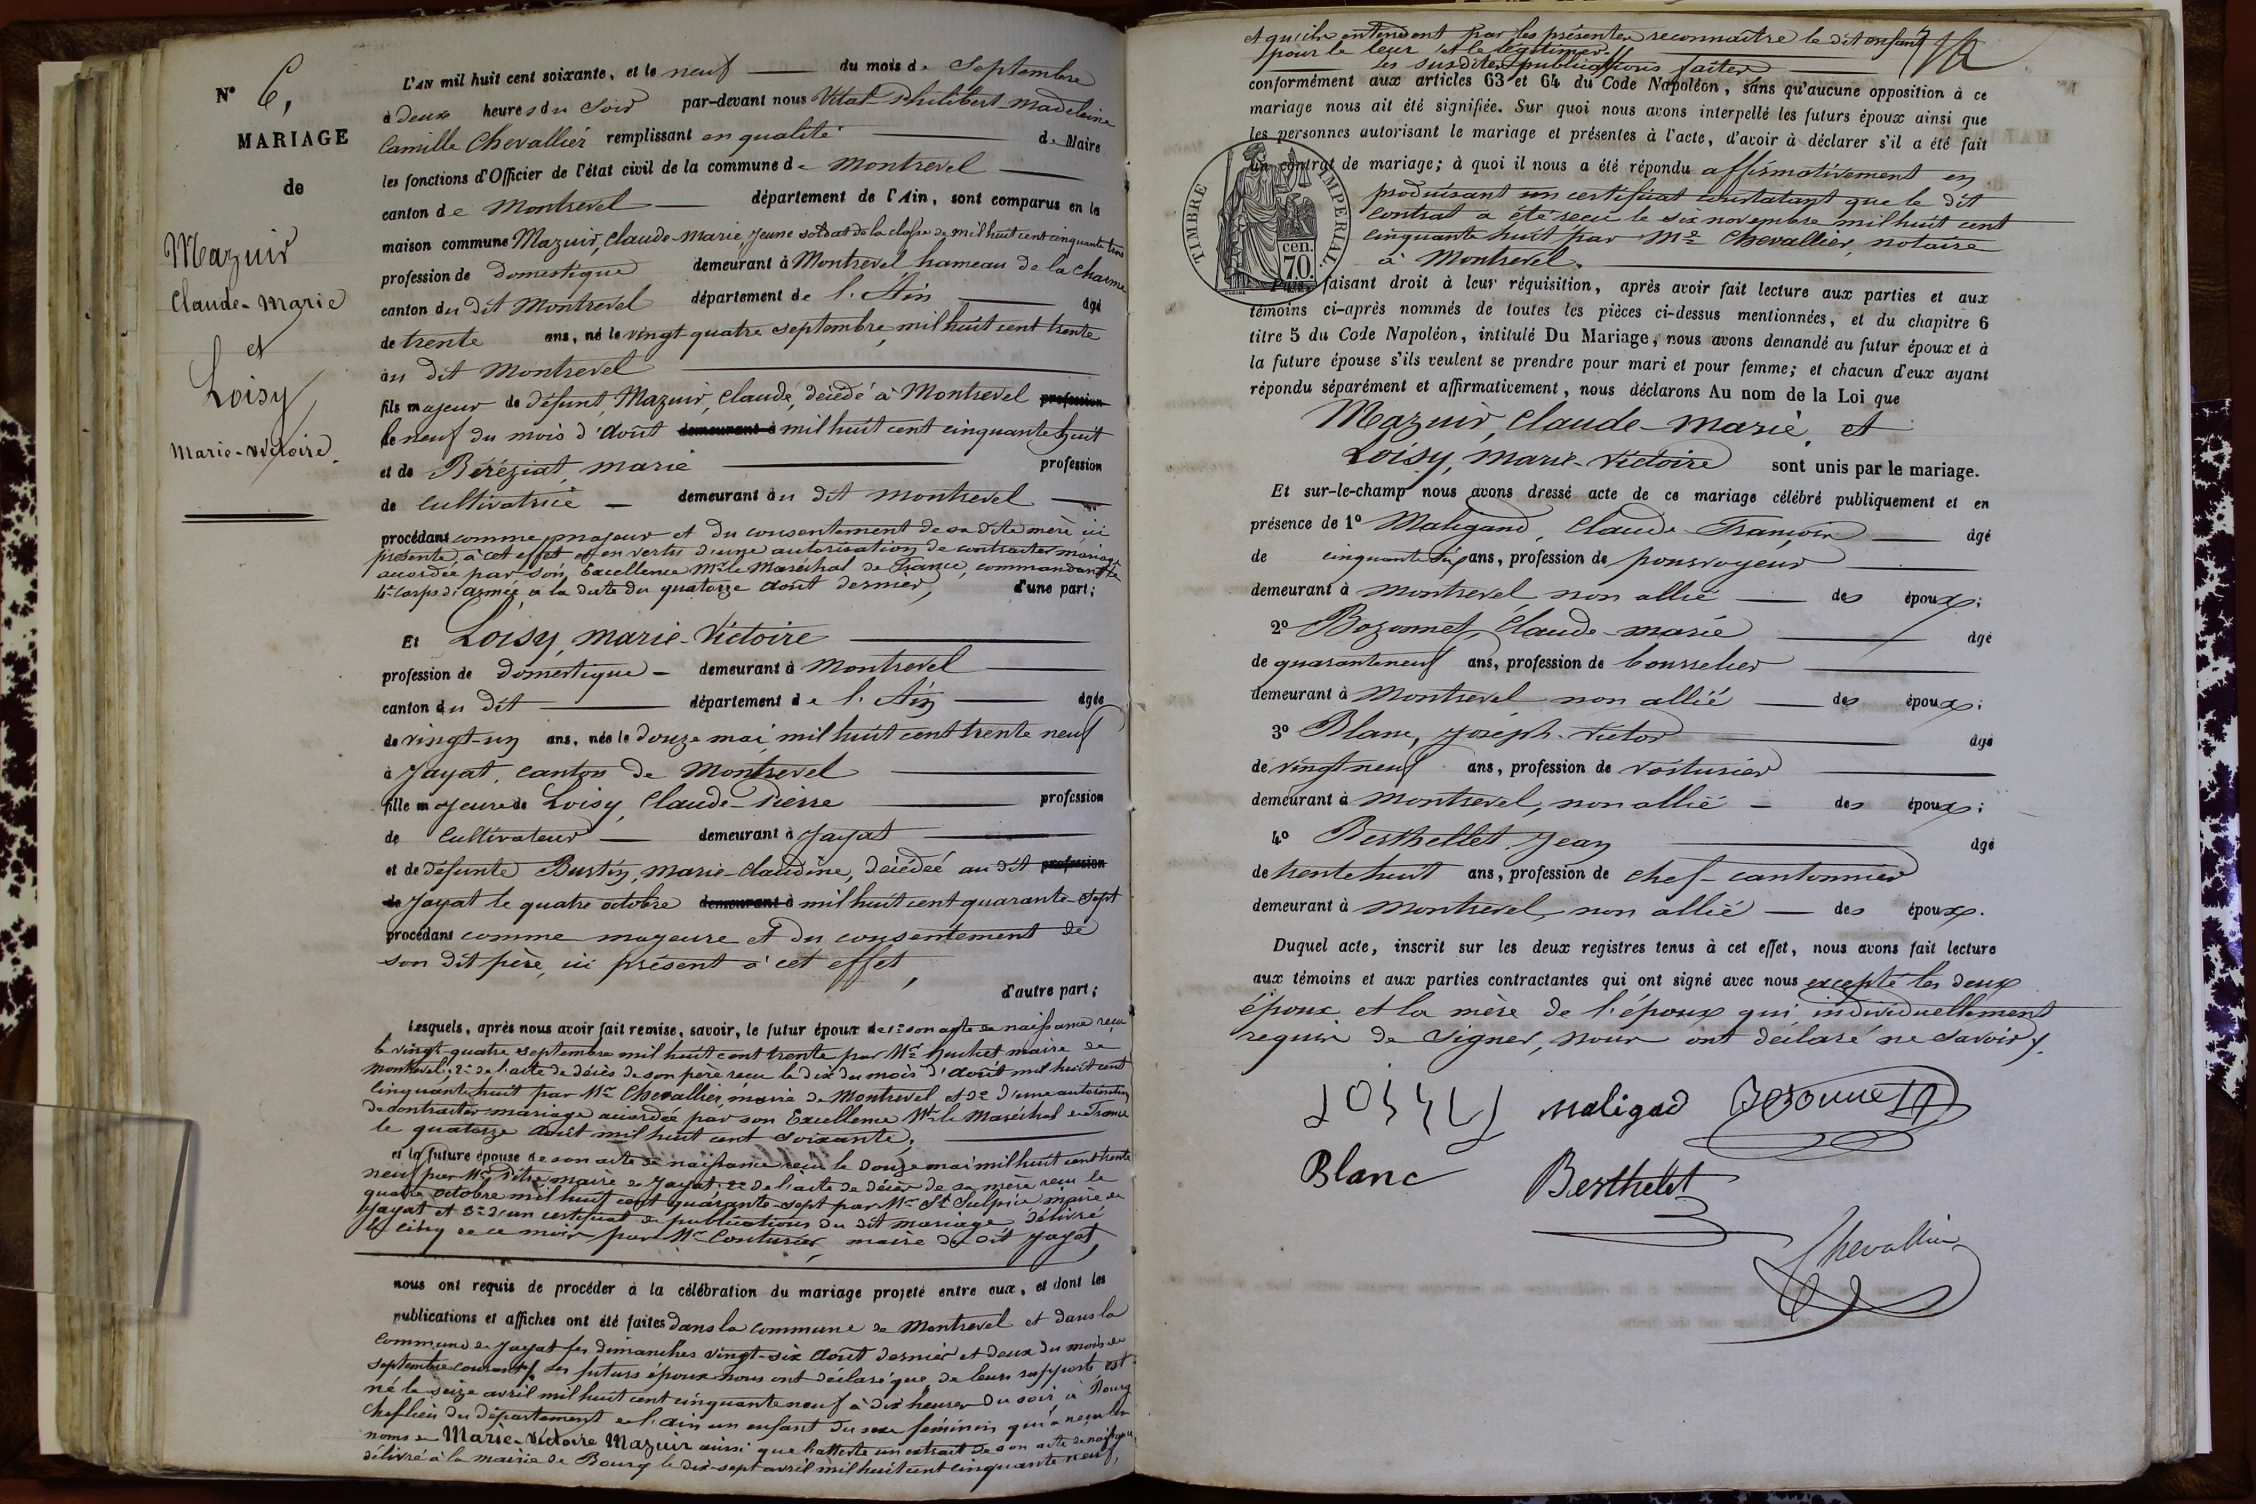 N° 6,
MARIAGE
de
Mazuir
Claude-Marie
et
Loisy
Marie-Victoire.
L'AN mil huit cent soixante, et le neuf du mois de Septembre
à deux heures du Soir par-devant nous Vital Philibert Madeleine
Camille Chevallier remplissant en qualité de Maire
les fonctions d'Officier de l'état civil de la commune de Montrevel
canton de Montrevel département de l'Ain, sont comparus en la
maison commune Mazuir, Claude-Marie, Jeune soldat de la classe de mil huit cent cinquante
profession de domestique demeurant à Montrevel hameau de la Charme
canton du dit Montrevel département de l'Ain âgé
de trente ans, né le vingt quatre septembre, mil huit cent trente
au dit Montrevel
fils majeur de défunt, Mazuir, Claude, décédé à Montrevel profession
le neuf du mois d'Août demeurant à mil huit cent cinquante huit
et de Béréziat, Marie profession
de Cultivatrice demeurant au dit Montrevel
procédant comme majeur et du consentement de sa dite mère ici
présente à cet effet et en vertu d'une autorisation de contracter mariage
accordée par Son Excellence Mr le Maréchal de France, commandant le
4e corps d'armée, à la date du quatorze Août dernier, d'une part;
Et Loisy, Marie-Victoire
profession de Domestique demeurant à Montrevel
canton du dit département de l'Ain âgée
de vingt-un ans, née le Douze mai mil huit cent trente neuf
à Jayat, canton de Montrevel
fille majeure de Loisy, Claude-Pierre profession
de Cultivateur demeurant à Jayat
et de défunte Burtin, Marie-Claudine, décédée au dit profession
de Jayat le quatre octobre demeurant à mil huit cent quarante-sept
procédant comme majeure et du consentement de
son dit père, ici présent à cet effet,
d'autre part;
Lesquels, après nous avoir fait remise, savoir, le futur époux de 1° son acte de naissance reçu
le vingt-quatre septembre mil huit cent trente par Mr maire de
Montrevel, 2° de l'acte de décès de son père reçu le dix du mois d'Août mil huit cent
cinquante huit par Mr Chevallier, maire de Montrevel et 3° d'une autorisation
de contracter mariage accordée par son Excellence Mr le Maréchal de France
le quatorze Août mil huit cent soixante;
et la future épouse de son acte de naissance reçu le douze mai mil huit cent trente
neuf par Mr maire de Jayat, 2° de l'acte de décès de sa mère reçu le
quatre octobre mil huit cent quarante-sept par Mr St Sulpice maire de
Jayat et 3° d'un certificat de publications du dit mariage délivré
le cinq de ce mois par Mr Couturier, maire du dit Jayat,
nous ont requis de procéder à la célébration du mariage projeté entre eux, et dont les
publications et affiches ont été faites dans la commune de Montrevel et dans la
commune de Jayat les dimanches vingt-six Août dernier et deux du mois de
septembre courant. Les futurs époux nous ont déclaré que de leurs rapports est
né le seize avril mil huit cent cinquante neuf à dix heures du soir, à Bourg
Chef-lieu du département de l'Ain un enfant du sexe féminin qui a reçu les
noms de Marie-Victoire Mazuir ainsi que l'atteste un extrait de son acte de naissance
délivré à la mairie de Bourg le dix-sept avril mil huit cent cinquante neuf,
et qu'ils entendent par les présentes reconnaître le dit enfant
pour le leur et le légitimer.
les susdites publications faites
conformément aux articles 63 et 64 du Code Napoléon, sans qu'aucune opposition à ce
mariage nous ait été signifiée. Sur quoi nous avons interpellé les futurs époux ainsi que
les personnes autorisant le mariage et présentes à l'acte, d'avoir à déclarer s'il a été fait
un contrat de mariage; à quoi il nous a été répondu affirmativement en
produisant un certificat constatant que le dit
contrat a été reçu le six novembre mil huit cent
cinquante huit par Me Chevallier, notaire
à Montrevel.
TIMBRE IMPERIAL.
cen.
70.
Puis, faisant droit à leur réquisition, après avoir fait lecture aux parties et aux
témoins ci-après nommés de toutes les pièces ci-dessus mentionnées, et du chapitre 6
titre 5 du Code Napoléon, intitulé Du Mariage, nous avons demandé au futur époux et à
la future épouse s'ils veulent se prendre pour mari et pour femme; et chacun d'eux ayant
répondu séparément et affirmativement, nous déclarons Au nom de la Loi que
Mazuir, Claude-Marie, et
Loisy, Marie-Victoire sont unis par le mariage.
Et sur-le-champ nous avons dressé acte de ce mariage célébré publiquement et en
présence de 1° Maligand, Claude-François âgé
de cinquante ans, profession de pourvoyeur
demeurant à Montrevel non allié des époux;
2° Bozonnet, Claude-Marie âgé
de quarante neuf ans, profession de bourrelier
demeurant à Montrevel non allié des époux;
3° Blanc, Joseph-Victor âgé
de vingt neuf ans, profession de voiturier
demeurant à Montrevel, non allié des époux;
4° Berthellet Jean âgé
de trente huit ans, profession de chef-cantonnier
demeurant à Montrevel non allié des époux.
Duquel acte, inscrit sur les deux registres tenus à cet effet, nous avons fait lecture
aux témoins et aux parties contractantes qui ont signé avec nous excepté les deux
époux et la mère de l'époux qui individuellement
requis de signer, nous ont déclaré ne savoir.
Loisy Maligad Bozonnet
Blanc Berthelet
Chevallier